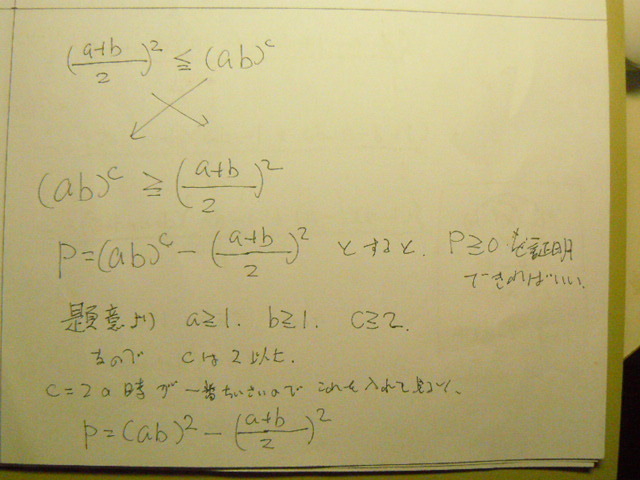 (a+b/2)² ≦ (ab)^c
(ab)^c ≧ (a+b/2)²
P=(ab)^c-(a+b/2)² とすると、P≧0を証明
できればいい、
題意より a≧1. b≧1. c≧2.
なので cは2以上.
c=2の時が一番ちいさいのでこれを入れて見ると、
P=(ab)²-(a+b/2)²